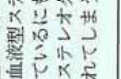 血液型ステ
ているにも
ステレオタ
れてしま